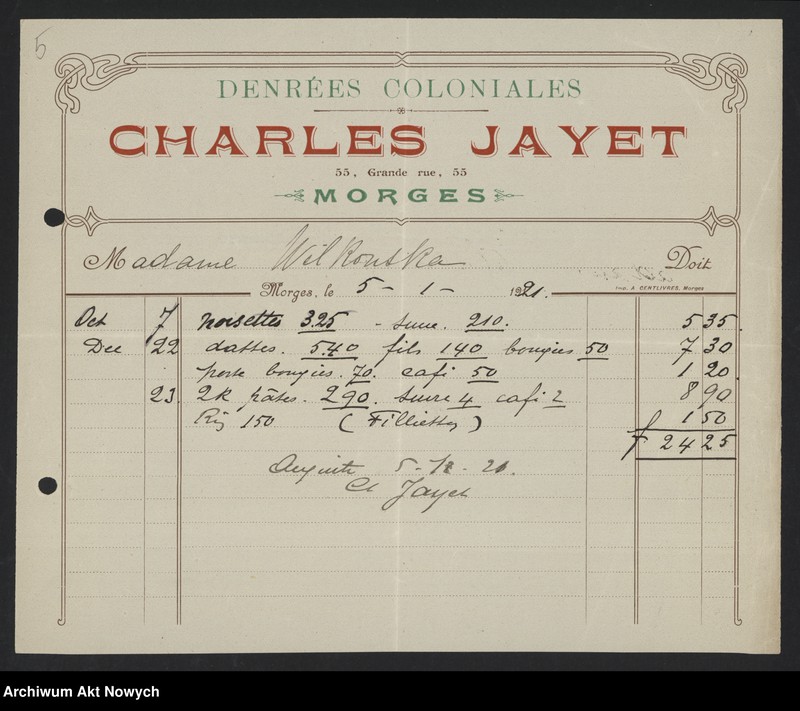 5
DENRÉES COLONIALES
CHARLES JAYET
55, Grande rue, 55
MORGES
Madame Wilkonska Doit
Morges, le 5 - 1 - 1921.
Imp. A. CENTLIVRES, Morges
Oct 7 noisettes 3.25 - sucre. 210. 5 35
Dec 22 dattes. 5.40 fils 140 bougies 50 7 30
porte bougies. 70. café 50 1 20
23 2K pâtes. 290. sucre 4 café 2 8 90
Riz 150 (Filliettes) 1 50
f 24 25
Acquitté 5-1-21.
Ch Jayet
Archiwum Akt Nowych